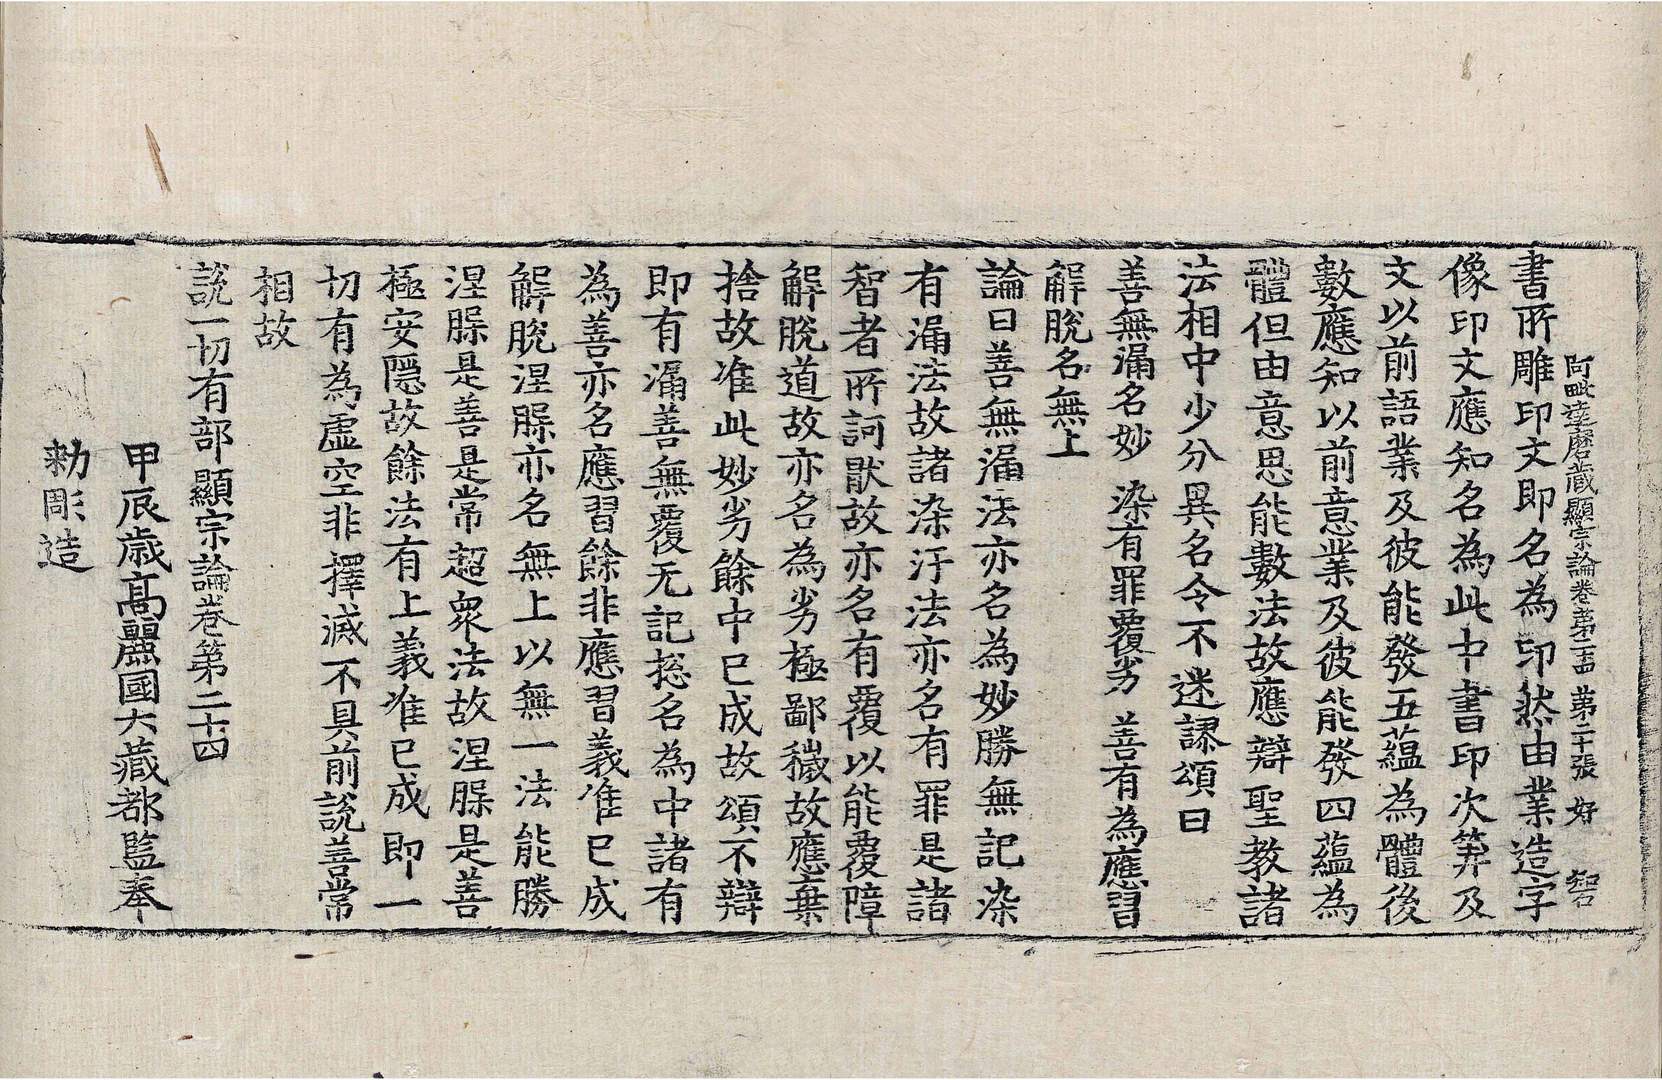 阿毗達磨藏顯宗論卷第二十四 第二十張 好 智
書所雕印文即名為印然由業造字
像印文應知名為此中書印次筭及
文以前語業及彼能發五蘊為體後
數應知以前意業及彼能發四蘊為
體但由意思能數法故應辯聖教諸
法相中少分異名令不迷謬頌曰
善無漏名妙 染有罪覆劣 善有為應習
解脫名無上
論曰善無漏法亦名為妙勝無記染
有漏法故諸染汙法亦名有罪是諸
智者所訶猒故亦名有覆以能覆障
解脫道故亦名為劣極鄙穢故應棄
捨故准此妙劣餘中已成故頌不辯
即有漏善無覆无記揔名為中諸有
為善亦名應習餘非應習義准已成
解脫涅槃亦名無上以無一法能勝
涅槃是善是常超衆法故涅槃是善
極安隱故餘法有上義准已成即一
切有為虛空非擇滅不具前說善常
相故
說一切有部顯宗論卷第二十四
甲辰歲高麗國大藏都監奉
勑彫造